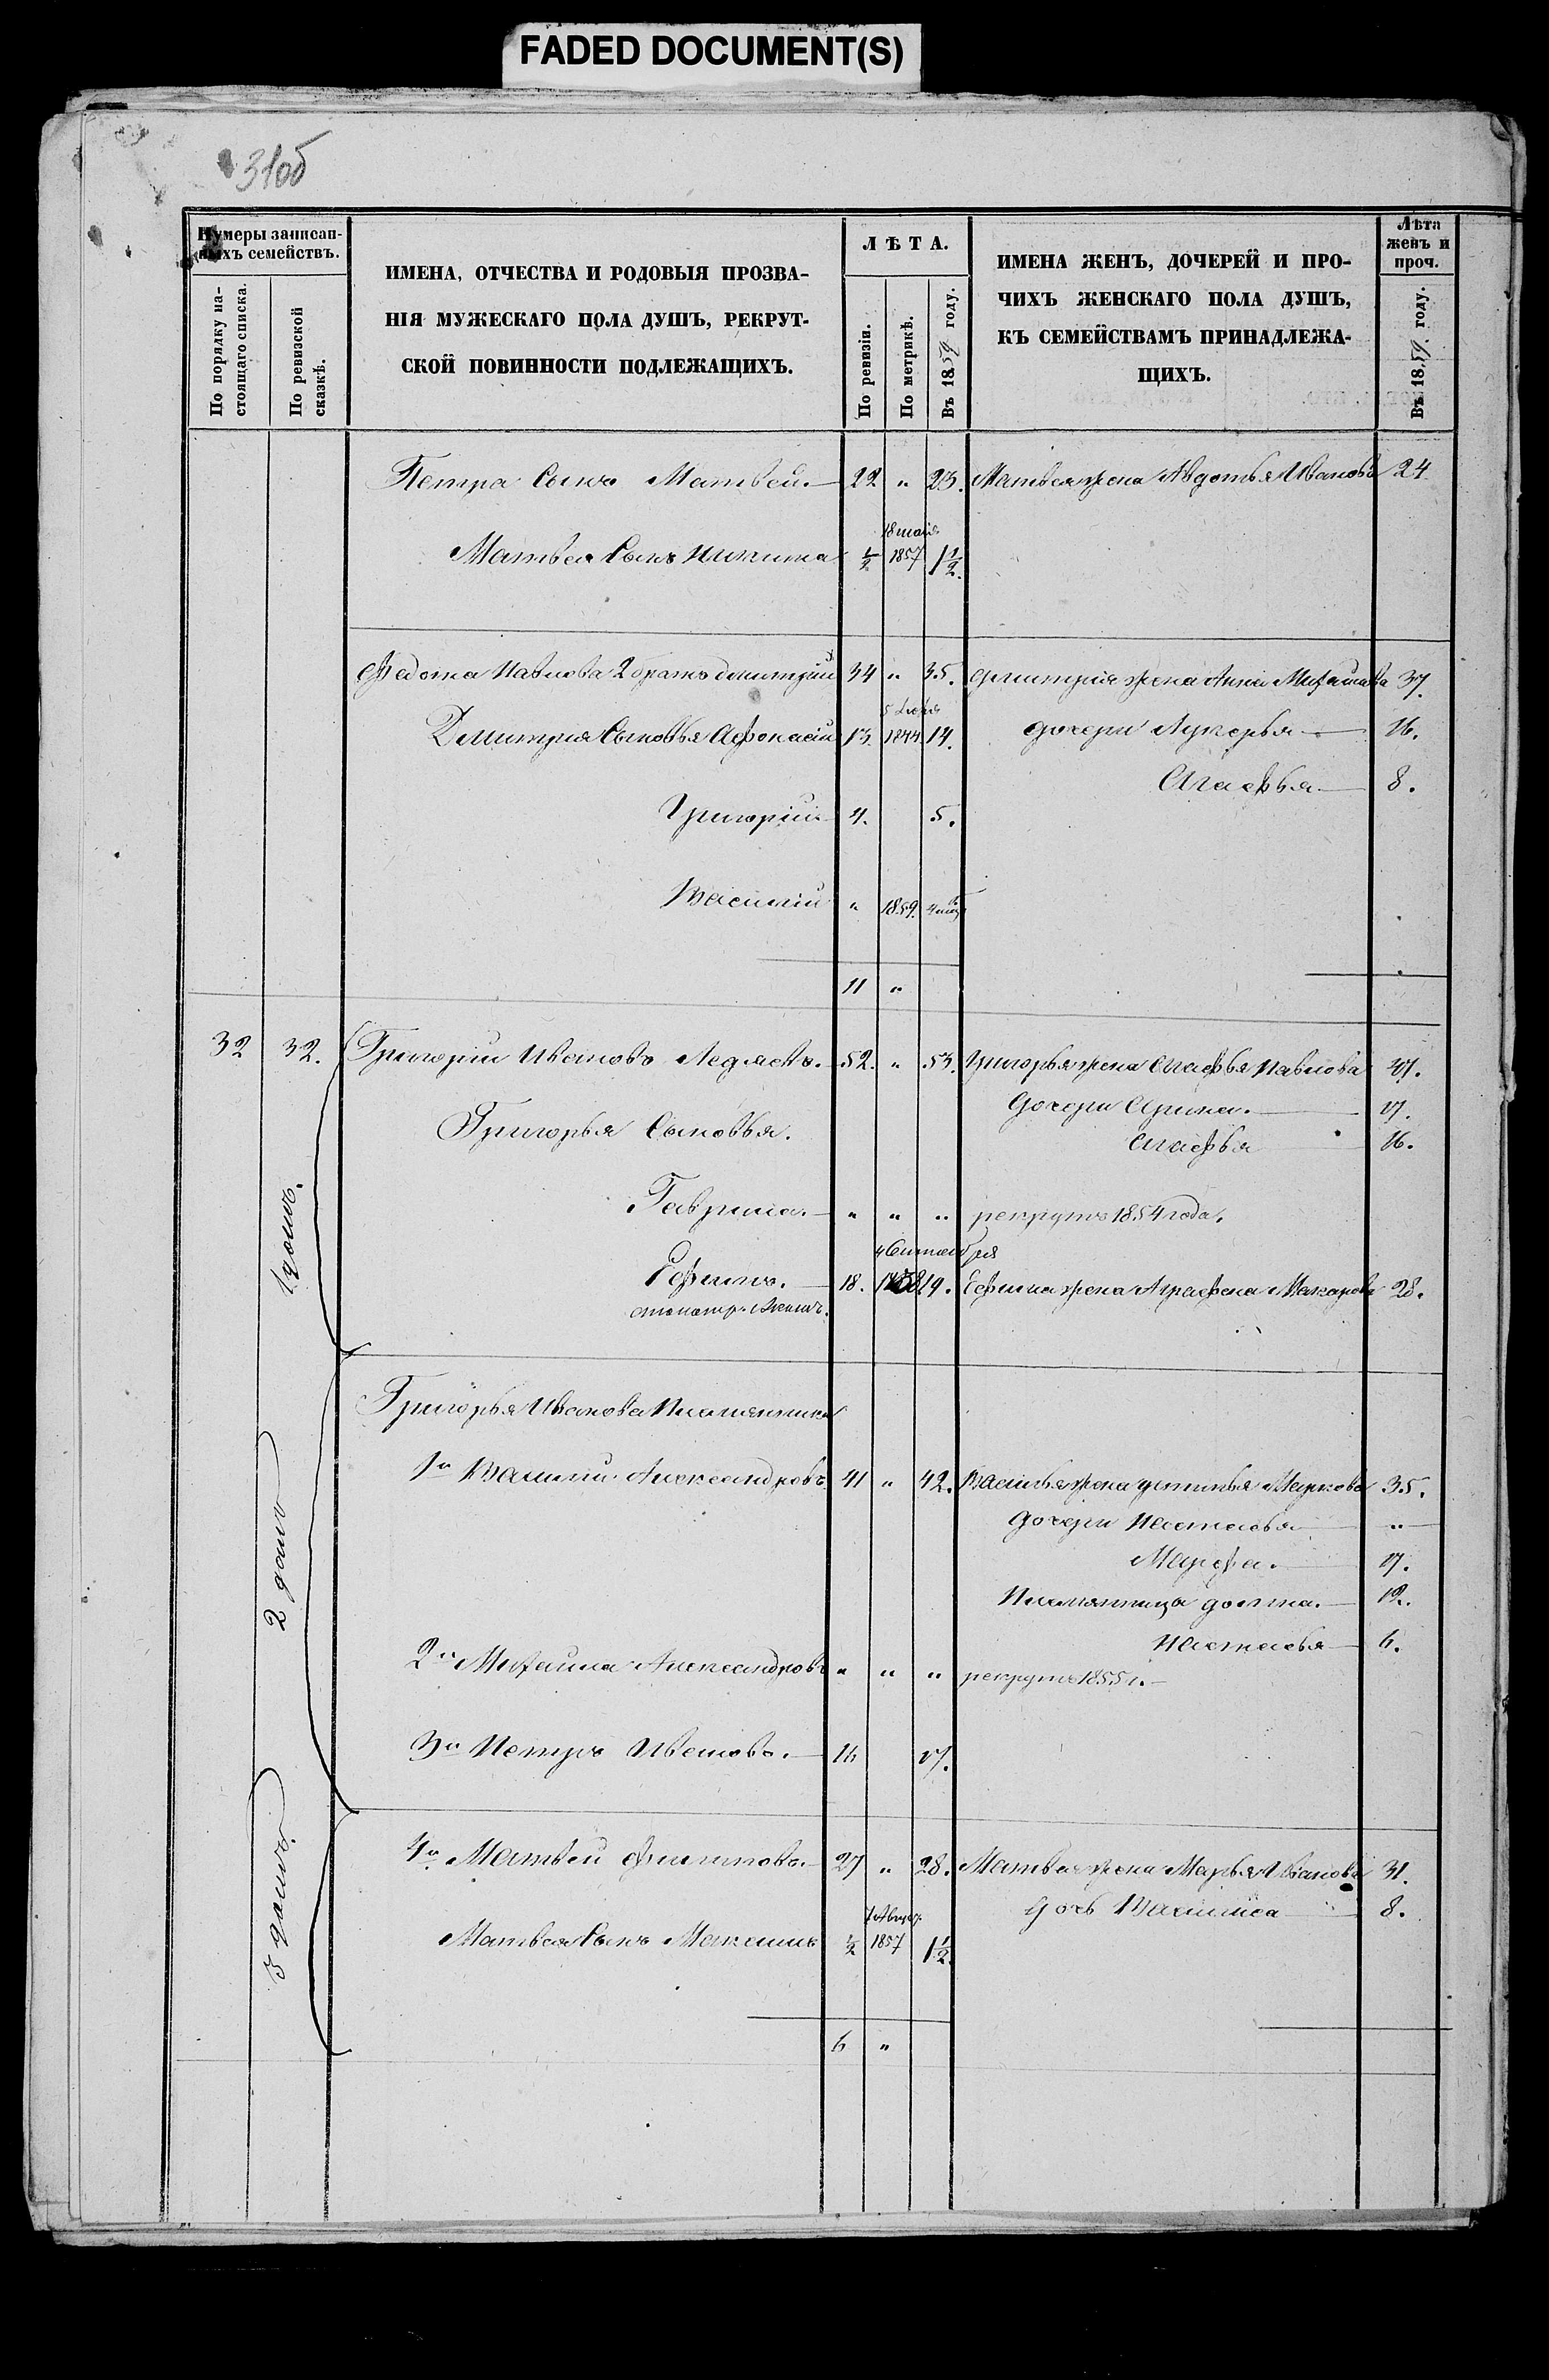 FADED DOCUMENT(S)
31об
Нумеры записан-
ныхъ семействъ.
По порядку на-
стоящаго списка.
По ревизской
сказкѣ.
ИМЕНА, ОТЧЕСТВА И РОДОВЫЯ ПРОЗВА-
НІЯ МУЖЕСКАГО ПОЛА ДУШЪ, РЕКРУТ-
СКОЙ ПОВИННОСТИ ПОДЛЕЖАЩИХЪ.
ЛѢТА.
По ревизіи.
По метрикѣ.
Въ 1859 году.
ИМЕНА ЖЕНЪ, ДОЧЕРЕЙ И ПРО-
ЧИХЪ ЖЕНСКАГО ПОЛА ДУШЪ,
КЪ СЕМЕЙСТВАМЪ ПРИНАДЛЕЖА-
ЩИХЪ.
Лѣта
женъ и
проч.
Въ 1859 году.
Петра Сынъ Матвей. 22 " 23. Матвея жена Авдотья Иванова 24
18 маія
Матвея Сынъ Никита 1/2 1857 1 1/2.
Федота Павлова 2 братъ Дмитрій 34 " 35. Дмитрія жена Анна Михайлова 37.
5
Дмитрія Сыновья Афонасій 13. 1844. 14. дочери Лукерья 16.
Агафья 8.
Григорій 4. 5.
Василій " 1859. 4
11 "
32 32. Григорій Ивановъ 52. " 53. Григорья жена Агафья Павлова 41.
дочери Арина. 17.
Григорья Сыновья.
Агафья 16.
1 домъ.
Гаврила. " " " рекрутъ 1854 года.
Ефимъ. 18. 19. Ефима жена Аграфена Макарова 28.
Григорья Иванова Племянники
1й Василій Александровъ 41 " 42. Василья жена Устинья Маркова 35.
дочери Настасья "
2 домъ
Марфа. 17.
Племянница Домна. 12.
Настасья 6.
2й Михаила Александровъ " " " рекрутъ 1855 г.
3й Петръ Ивановъ. 16 17.
4й Матвей Филиповъ. 27 " 28. Матвея жена Марья Иванова 31.
3 домъ.
дочь Василиса 8.
Матвея Сынъ Максимъ 1/2 1857 1 1/2.
6 "